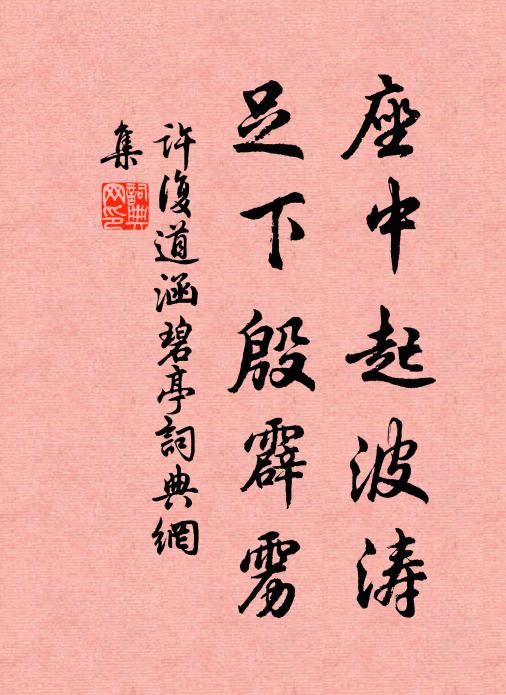 座中起波涛
足下殷霹雳
许复道涵碧亭词典網
集
詞典网印